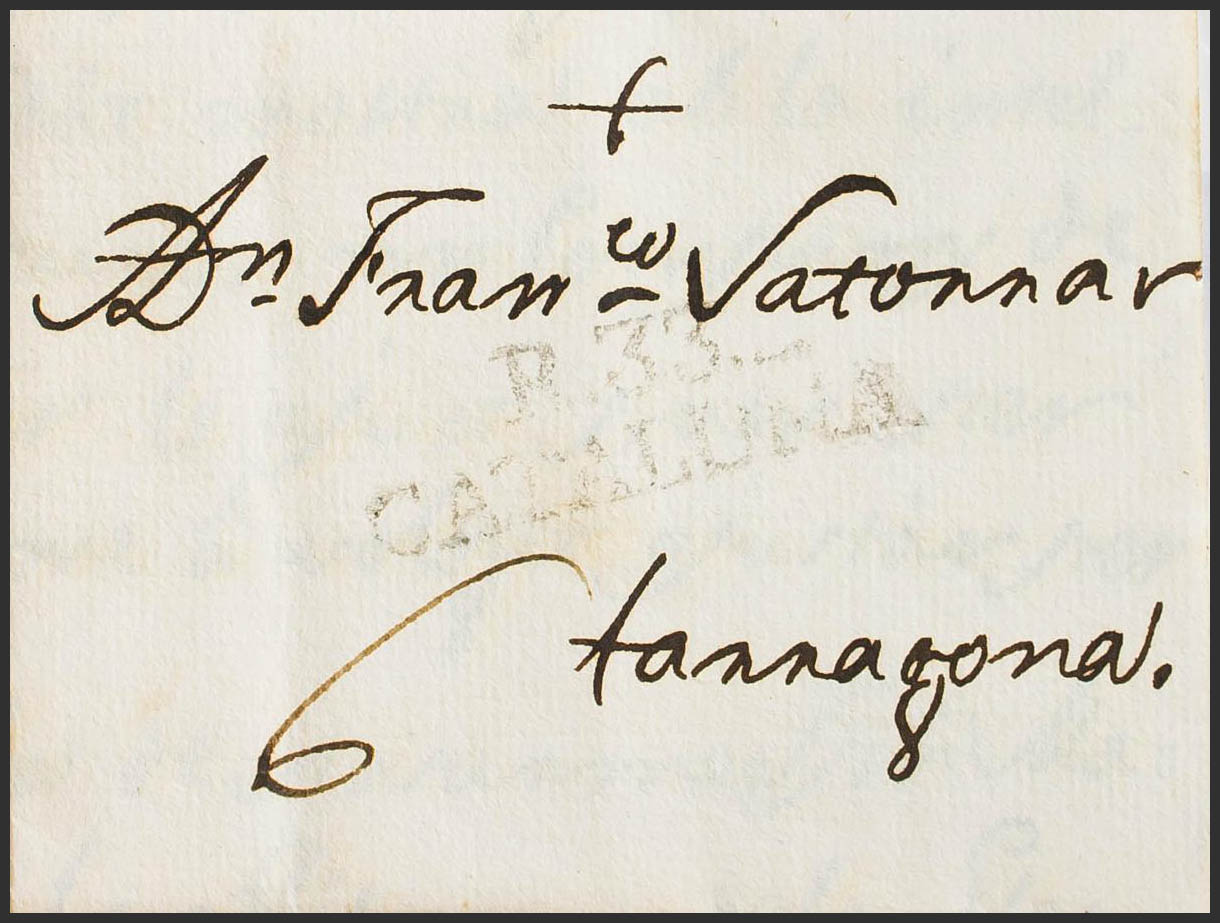 +
Dn Franco Satorrar
R.33.
CATALUÑA
tarragona.
6